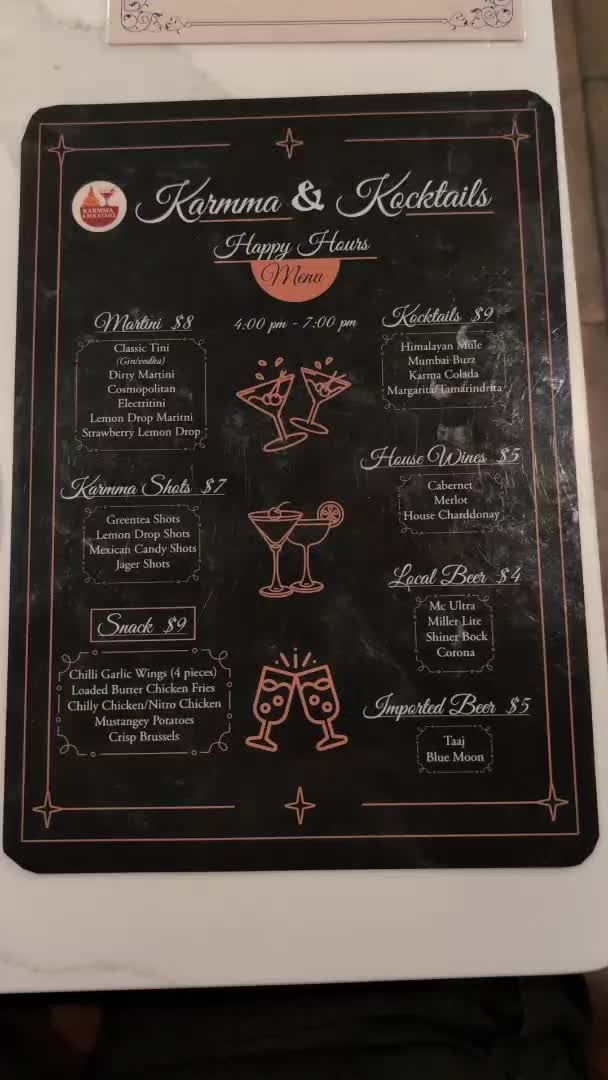 KARMMA
& KOCKTAILS
Karmma & Kocktails
Happy Hours
Menu
4:00 pm - 7:00 pm
Martini $8
Classic Tini
(Gin/vodka)
Dirty Martini
Cosmopolitan
Electritini
Lemon Drop Maritni
Strawberry Lemon Drop
Karmma Shots $7
Greentea Shots
Lemon Drop Shots
Mexican Candy Shots
Jager Shots
Snack $9
Chilli Garlic Wings (4 pieces)
Loaded Butter Chicken Fries
Chilly Chicken/Nitro Chicken
Mustangey Potatoes
Crisp Brussels
Kocktails $9
Himalayan Mule
Mumbai Buzz
Karma Colada
Margarita/Tamarindrita
House Wines $5
Cabernet
Merlot
House Charddonay
Local Beer $4
Mc Ultra
Miller Lite
Shiner Bock
Corona
Imported Beer $5
Taaj
Blue Moon